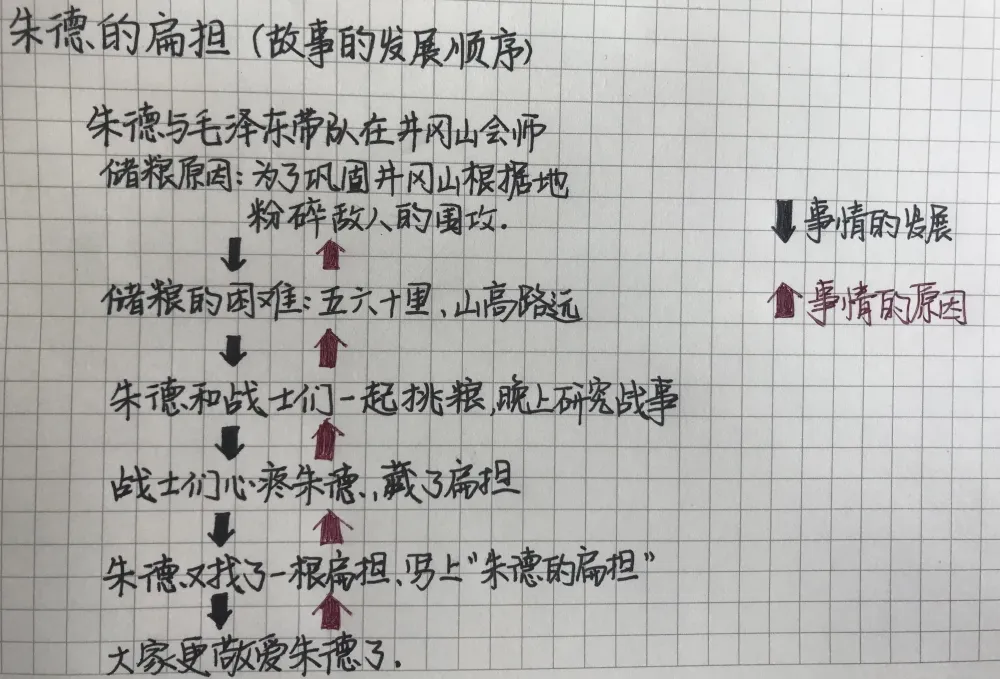 朱德的扁担（故事的发展顺序）
朱德与毛泽东带队在井冈山会师
储粮原因：为了巩固井冈山根据地
粉碎敌人的围攻.
事情的发展
储粮的困难：五六十里、山高路远
事情的原因
朱德和战士们一起挑粮,晚上研究战事
战士们心疼朱德,藏了扁担
朱德又找了一根扁担、写上“朱德的扁担”
大家更敬爱朱德了.